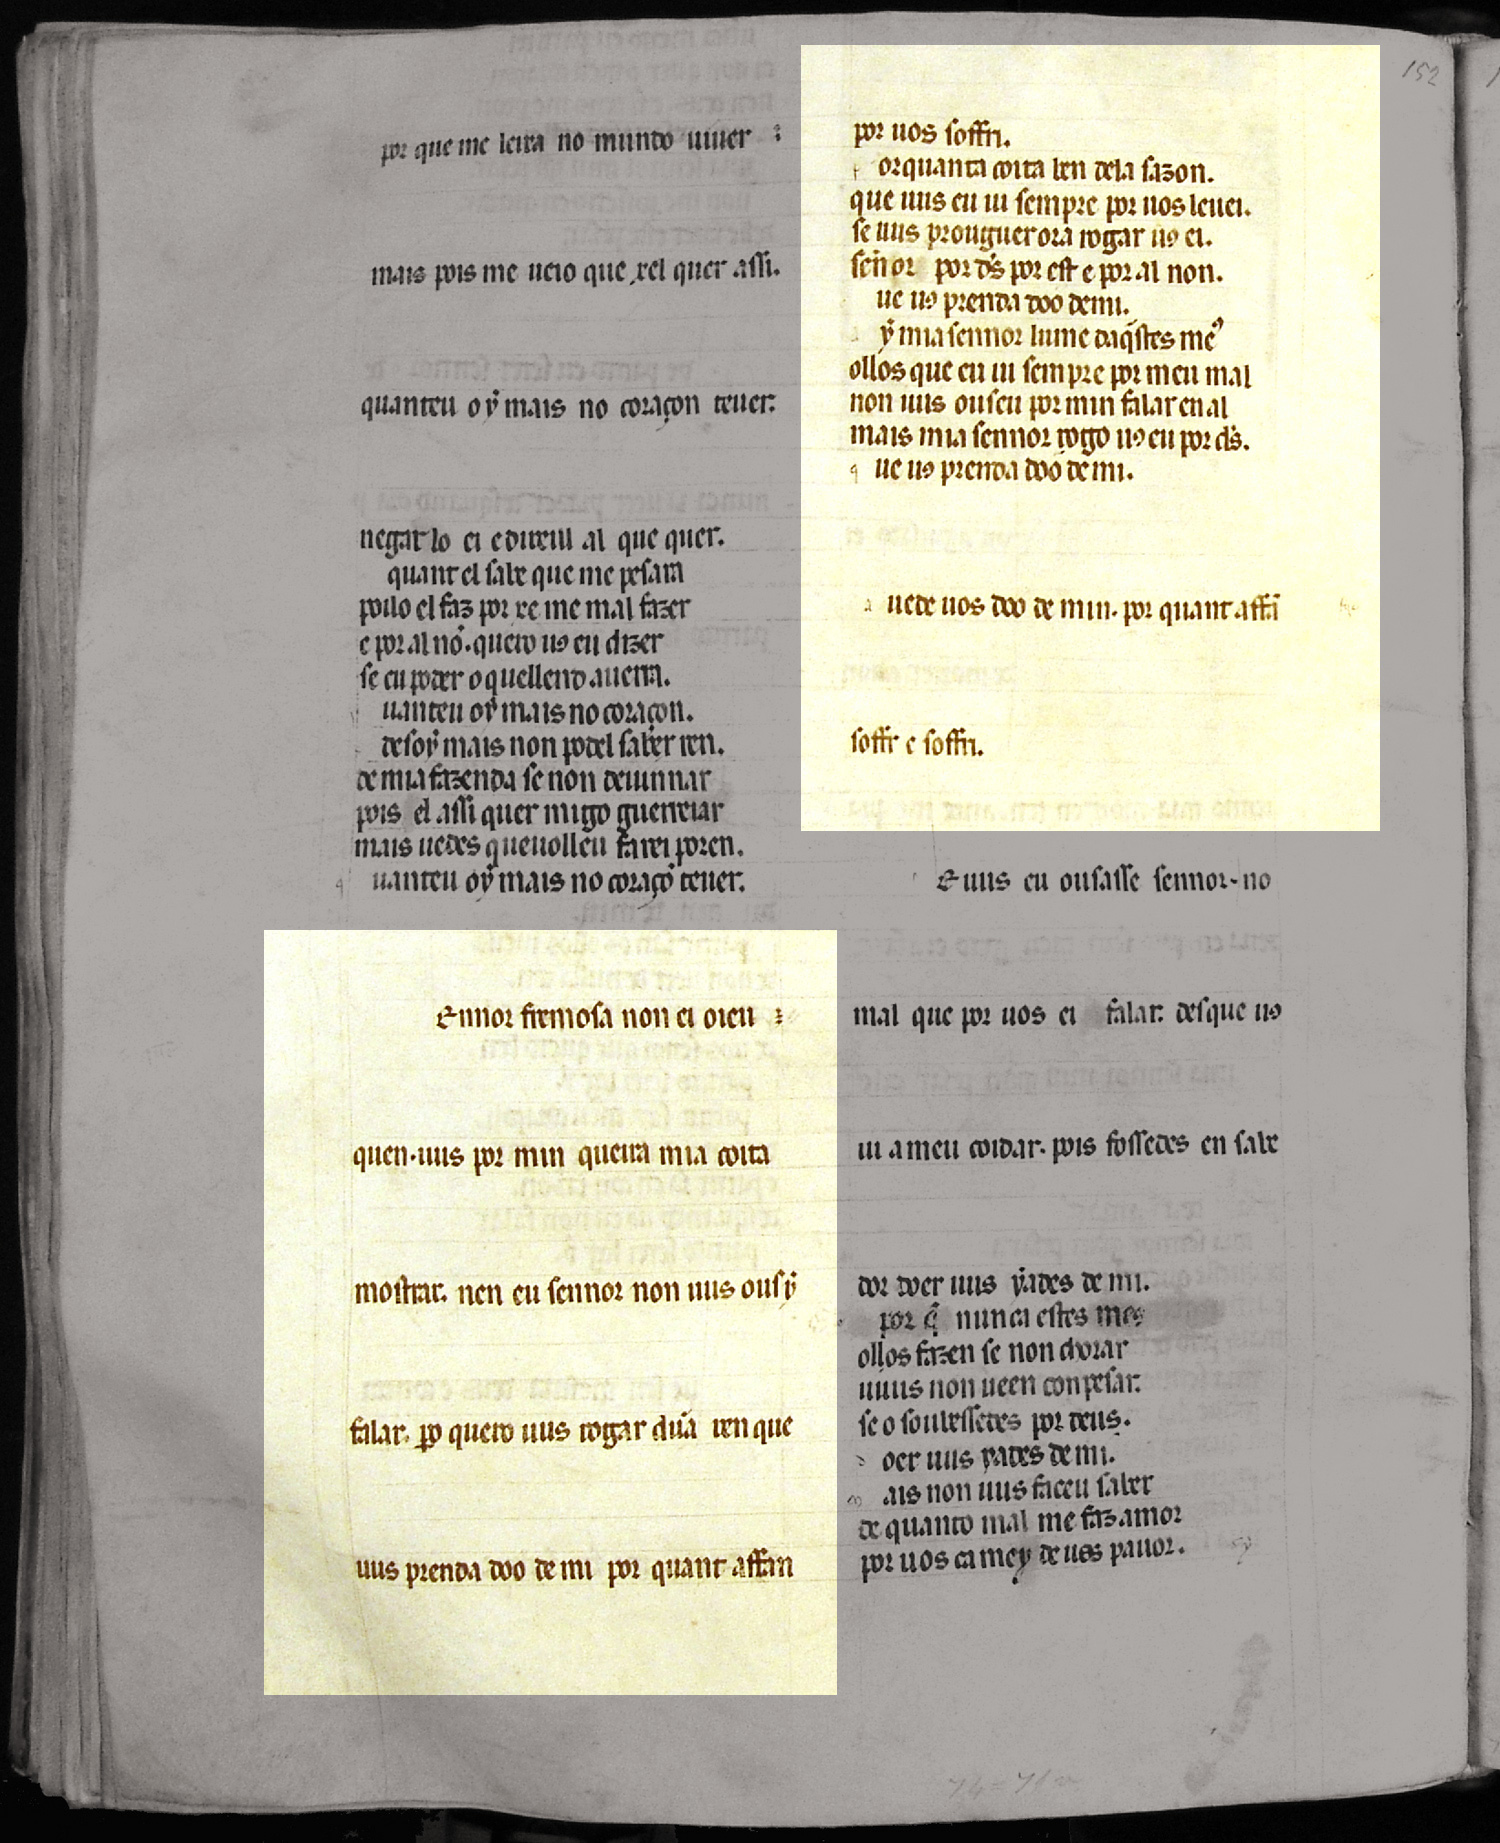 por que me leixa no mundo uiuer
mais pois me ueio que xel quer assi.
quanteu oẏ mais no coraçon teuer.
negarlo ei e direill al que quer.
quant el sabe que me pesara
poilo el faz por xe me mal fazer
e por al nõ. quero uꝯ eu dizer
se eu poder o quellend auerra.
uanteu oẏ mais no coraçon.
desoẏ mais non podel saber ren.
de mia fazenda se non deuinnar
pois el assi quer migo guerreiar
mais uedes queuolleu farei poren.
q uanteu oẏ mais no coraçõ teuer.
Ennor fremosa non ei oieu
quen. uus por min queira mia coita
mostrar. nen eu sennor non uus ousẏ
falar. ꝑo quero uus rogar dũa ren que
uus prenda doo de mi por quant affan
por uos soffri.
orquanta coita ben dela sazon.
que uus eu ui sempre por uos leuei.
se uus prouguer ora rogar uꝯ ei.
sen̄or por d̄s por est e por al non.
ue uꝯ prenda doo de mi.
ẏ mia sennor lume daq̄stes meꝰ
ollos que eu ui sempre por meu mal
non uus ouseu por min falar en al
mais mia sennor rogo uꝯ eu por d̄s.
q ue uꝯ prenda doo de mi.
a uede uos doo de min. por quant affã
soffr e soffri.
E uus eu ousasse sennor. no
mal que por uos ei falar. desque uꝯ
ui a meu coidar. pois fossedes en sabe
dor doer uus ẏades de mi.
por q̄ nunca estes meꝯ
ollos fazen se non chorar
u uus non ueen con pesar.
se o soubessedes por deus.
oer uus yades de mi.
m ais non uus faceu saber
de quanto mal me faz amor
por uos ca mey de uos pauor.